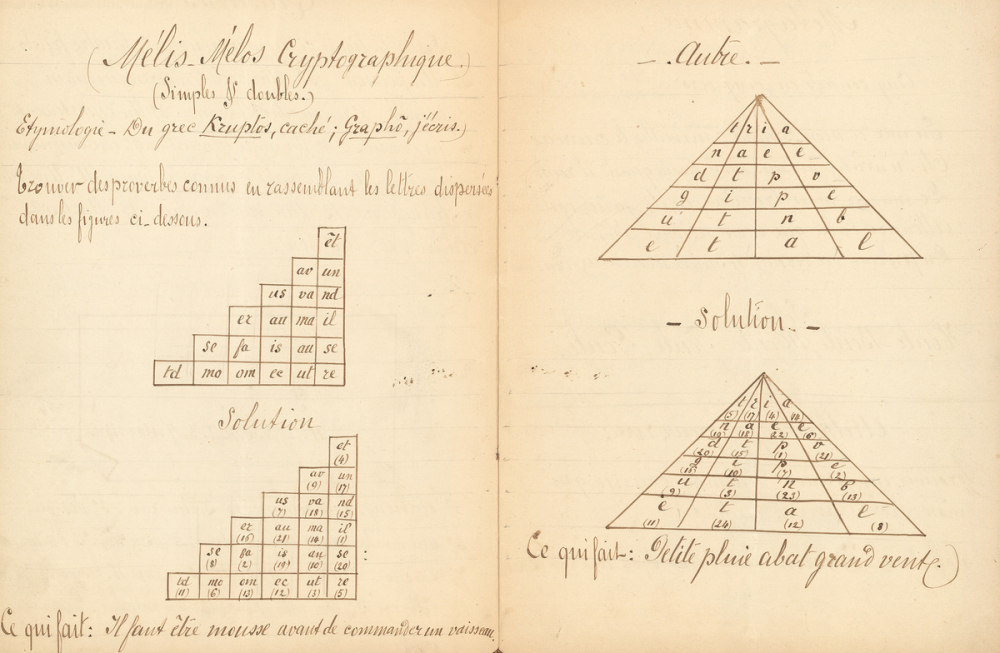 (Mélis-Mélos Cryptographique.)
(Simples & doubles.)
Etymologie - Du grec Kruptos, caché; Graphô, j'écris.)
Trouver des proverbes connus en rassemblant les lettres dispersées
dans les figures ci-dessous.
êt
av un
us va nd
er au ma il
se fa is au se
td mo om ec ut re
Solution
et
(4)
av un
(9) (17)
us va nd
(7) (18) (15)
er au ma il
(16) (21) (14) (1)
se fa is an se :
(8) (2) (19) (10) (20)
td mo om ec ut re
(11) (6) (13) (12) (3) (5)
Ce qui fait: Il faut être mousse avant de commander un vaisseau.
- Autre. -
t r i a
n a e e
d t p v
g i p e
u t n b
e t a l
- Solution. -
t r i a
(5) (17) (4) (14)
n a e e
(19) (18) (22) (6)
d t p v
(20) (15) (1) (21)
g i p e
(16) (10) (7) (2)
u t n b
(9) (3) (23) (13)
e t a l
(11) (24) (12) (8)
Ce qui fait: Petite pluie abat grand vent.)